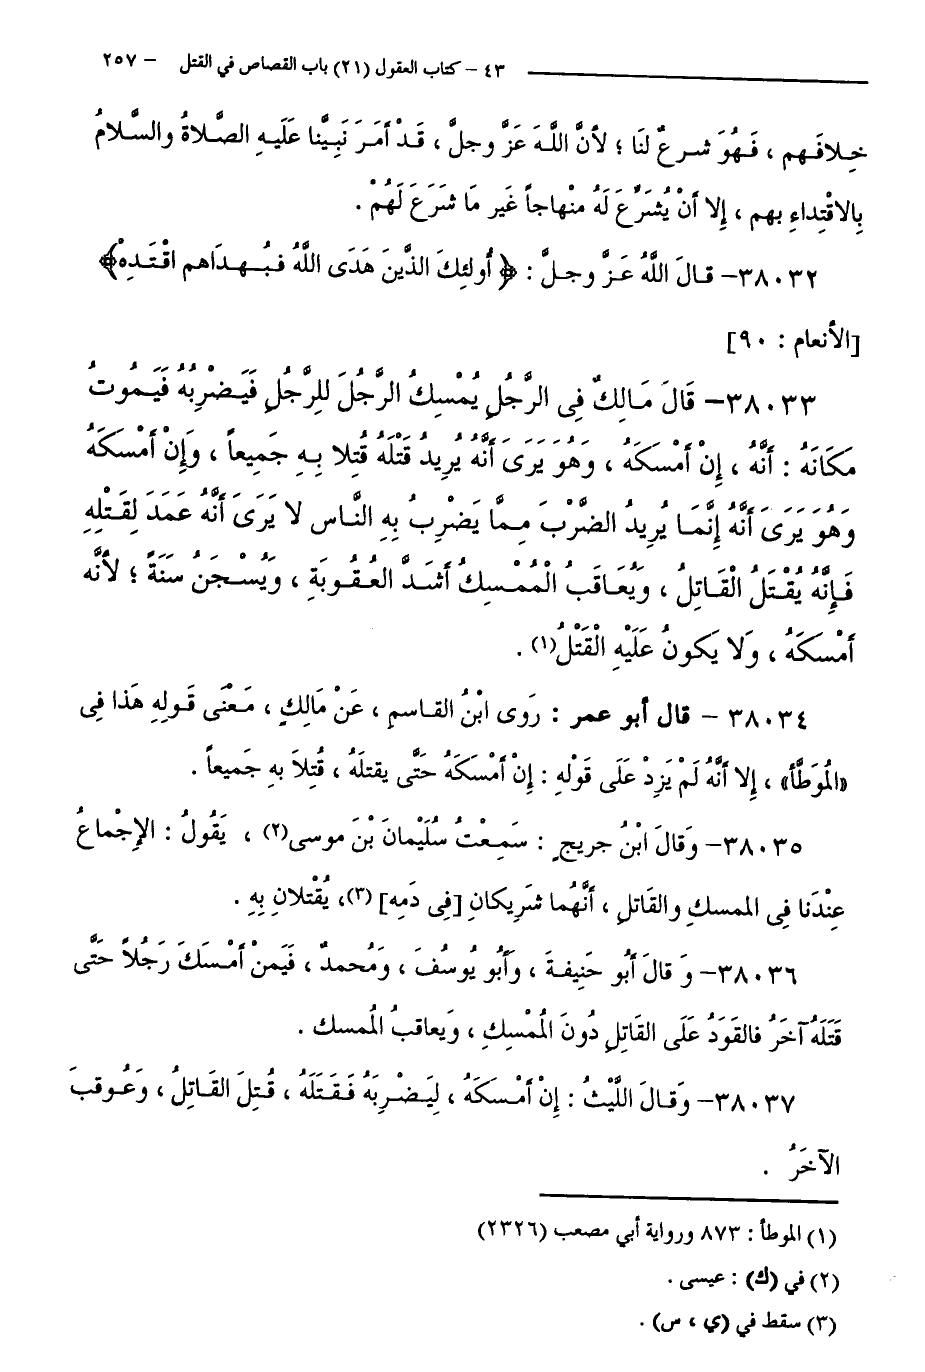 ٤٣ – كتاب العقول (٢١) باب القصاص في القتل – ٢٥٧
خِلافَهم ، فَهُوَ شرعٌ لَنَا ؛ لأنَّ اللَّهَ عَزَّ وجلَّ ، قَدْ أَمَرَ نَبِيَّنا عَلَيهِ الصَّلاةُ والسَّلامُ
بِالاقْتِداءِ بهم ، إِلا أنْ يُشَرَّعَ لَهُ منْهاجاً غَير مَا شَرَعَ لَهُمْ .
٣٨٠٣٢– قالَ اللَّهُ عَزَّ وجلَّ : ﴿ أُولئِكَ الذَّينَ هَدَى اللَّهُ فبُهدَاهم اقْتَدِهْ﴾
[الأنعام : ٩٠]
٣٨٠٣٣– قَالَ مَالِكٌ فِى الرَّجُلِ يُمْسِكُ الرَّجُلَ لِلرَّجُلِ فَيَضْرِبُهُ فَيَمُوتُ
مَكَانَهُ : أَنَّهُ ، إِنْ أَمْسَكَهُ ، وَهُوَ يَرَى أَنَّهُ يُرِيدُ قَتْلَهُ قُتِلا بِهِ جَمِيعاً ، وَإِنْ أَمْسَكَهُ
وَهُوَ يَرَى أَنَّهُ إِنَّمَا يُرِيدُ الضَّرْبَ مِمَّا يَضْرِبُ بِهِ النَّاس لا يَرَى أَنَّهُ عَمَدَ لِقَتْلِهِ
فَإِنَّهُ يُقْتَلُ الْقَاتِلُ ، وَيُعَاقَبُ الْمُمْسِكُ أَشَدَّ العُقُوبَةِ ، وَيُسْجَنُ سَنَةً ؛ لأَنَّه
أَمْسَكَهُ ، وَلا يَكونُ عَلَيْهِ الْقَتْلُ(١) .
٣٨٠٣٤ – قال أبو عمر : رَوى ابْنُ القاسمِ ، عَنْ مَالِكٍ ، مَعْنَى قَولِهِ هَذا فِى
«المُوَطَّأ» ، إِلا أنَّهُ لَمْ يَزِدْ عَلَى قَوْلِهِ : إِنْ أَمْسَكَهُ حَتَّى يقتلَهُ ، قُتِلاَ بِهِ جَميعاً .
٣٨٠٣٥– وَقالَ ابْنُ جريجٍ : سَمِعْتُ سُلَيْمانَ بْنَ موسى(٢) ، يَقُولُ : الإِجْماعُ
عِنْدَنا فِى الممسكِ والقَاتلِ ، أَنَّهُما شَرِيكانِ [فِى دَمِهِ] (٣)، يُقْتلانِ بِهِ .
٣٨٠٣٦– وَ قالَ أَبُو حَنِيفةَ ، وَأَبُو يُوسُفَ ، وَمُحمدٌ ، فَيَمنْ أَمْسَكَ رَجُلاً حَتَّى
قَتَلَهُ آخَرُ فالقَوَدُ عَلَى القَاتِلِ دُونَ الْمُمْسِكِ ، وَيعاقبُ الْمُمسك .
٣٨٠٣٧– وَقالَ اللَّيْثُ : إِنْ أَمْسَكَهُ ، لِيَضْرِبَهُ فَقَتَلَهُ ، قُتِلَ القَاتِلُ ، وَعُوقبَ
الآخَرُ .
(١) الموطأ : ٨٧٣ ورواية أبي مصعب (٢٣٢٦)
(٢) في (ك) : عيسى .
(٣) سقط في (ي ، س) .